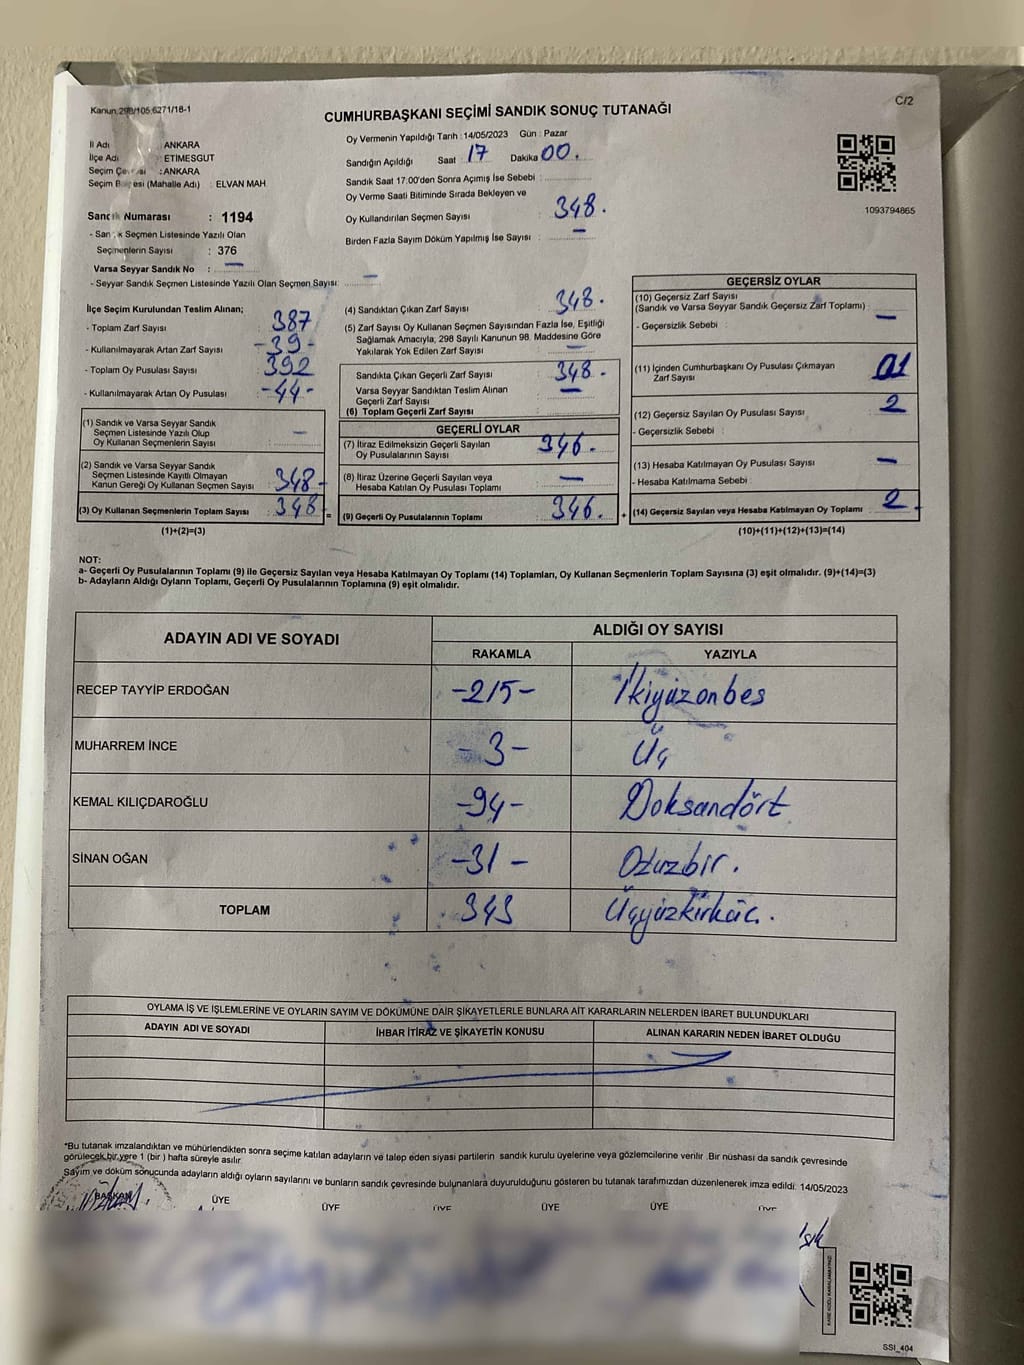 Kanun:298/105 6271/18-1
C/2
CUMHURBAŞKANI SEÇİMİ SANDIK SONUÇ TUTANAĞI
İl Adı : ANKARA
İlçe Adı : ETİMESGUT
Seçim Çevresi : ANKARA
Seçim Bölgesi (Mahalle Adı) : ELVAN MAH
Sandık Numarası : 1194
- Sandık Seçmen Listesinde Yazılı Olan
Seçmenlerin Sayısı : 376
Varsa Seyyar Sandık No : —
- Seyyar Sandık Seçmen Listesinde Yazılı Olan Seçmen Sayısı: —
Oy Vermenin Yapıldığı Tarih : 14/05/2023 Gün : Pazar
Sandığın Açıldığı Saat : 17 Dakika 00.
Sandık Saat 17:00'den Sonra Açımış İse Sebebi :
Oy Verme Saati Bitiminde Sırada Bekleyen ve
Oy Kullandırılan Seçmen Sayısı : 348.
Birden Fazla Sayım Döküm Yapılmış İse Sayısı : —
1093794865
İlçe Seçim Kurulundan Teslim Alınan;
- Toplam Zarf Sayısı : 387
- Kullanılmayarak Artan Zarf Sayısı : -39-
- Toplam Oy Pusulası Sayısı : 392
- Kullanılmayarak Artan Oy Pusulası : -44-
(1) Sandık ve Varsa Seyyar Sandık
Seçmen Listesinde Yazılı Olup
Oy Kullanan Seçmenlerin Sayısı : —
(2) Sandık ve Varsa Seyyar Sandık
Seçmen Listesinde Kayıtlı Olmayan
Kanun Gereği Oy Kullanan Seçmen Sayısı : 348-
(3) Oy Kullanan Seçmenlerin Toplam Sayısı : 348
(1)+(2)=(3)
=
(4) Sandıktan Çıkan Zarf Sayısı : 348.
(5) Zarf Sayısı Oy Kullanan Seçmen Sayısından Fazla İse, Eşitliği
Sağlamak Amacıyla, 298 Sayılı Kanunun 98. Maddesine Göre
Yakılarak Yok Edilen Zarf Sayısı : —
Sandıkta Çıkan Geçerli Zarf Sayısı : 348-
Varsa Seyyar Sandıktan Teslim Alınan
Geçerli Zarf Sayısı : —
(6) Toplam Geçerli Zarf Sayısı :
GEÇERLİ OYLAR
(7) İtiraz Edilmeksizin Geçerli Sayılan
Oy Pusulalarının Sayısı : 346.
(8) İtiraz Üzerine Geçerli Sayılan veya
Hesaba Katılan Oy Pusulası Toplamı : —
(9) Geçerli Oy Pusulalarının Toplamı : 346.
+
GEÇERSİZ OYLAR
(10) Geçersiz Zarf Sayısı
(Sandık ve Varsa Seyyar Sandık Geçersiz Zarf Toplamı) : —
- Geçersizlik Sebebi :
(11) İçinden Cumhurbaşkanı Oy Pusulası Çıkmayan
Zarf Sayısı :
(12) Geçersiz Sayılan Oy Pusulası Sayısı : 2
- Geçersizlik Sebebi :
(13) Hesaba Katılmayan Oy Pusulası Sayısı : —
- Hesaba Katılmama Sebebi :
(14) Geçersiz Sayılan veya Hesaba Katılmayan Oy Toplamı : 2.
(10)+(11)+(12)+(13)=(14)
NOT:
a- Geçerli Oy Pusulalarının Toplamı (9) ile Geçersiz Sayılan veya Hesaba Katılmayan Oy Toplamı (14) Toplamları, Oy Kullanan Seçmenlerin Toplam Sayısına (3) eşit olmalıdır. (9)+(14)=(3)
b- Adayların Aldığı Oyların Toplamı, Geçerli Oy Pusulalarının Toplamına (9) eşit olmalıdır.
ADAYIN ADI VE SOYADI ALDIĞI OY SAYISI
RAKAMLA YAZIYLA
RECEP TAYYİP ERDOĞAN -215- İkiyüzonbeş
MUHARREM İNCE -3- Üç
KEMAL KILIÇDAROĞLU -94- Doksandört
SİNAN OĞAN -31- Otuzbir.
TOPLAM 343 Üçyüzkırküç.
OYLAMA İŞ VE İŞLEMLERİNE VE OYLARIN SAYIM VE DÖKÜMÜNE DAİR ŞİKAYETLERLE BUNLARA AİT KARARLARIN NELERDEN İBARET BULUNDUKLARI
ADAYIN ADI VE SOYADI İHBAR İTİRAZ VE ŞİKAYETİN KONUSU ALINAN KARARIN NEDEN İBARET OLDUĞU
*Bu tutanak imzalandıktan ve mühürlendikten sonra seçime katılan adayların ve talep eden siyasi partilerin sandık kurulu üyelerine veya gözlemcilerine verilir .Bir nüshası da sandık çevresinde
görülecek bir yere 1 (bir ) hafta süreyle asılır.
Sayım ve döküm sonucunda adayların aldığı oyların sayılarını ve bunların sandık çevresinde bulunanlara duyurulduğunu gösteren bu tutanak tarafımızdan düzenlenerek imza edildi: 14/05/2023
BAŞKAN ÜYE ÜYE ÜYE ÜYE ÜYE ÜYE
SSI_404